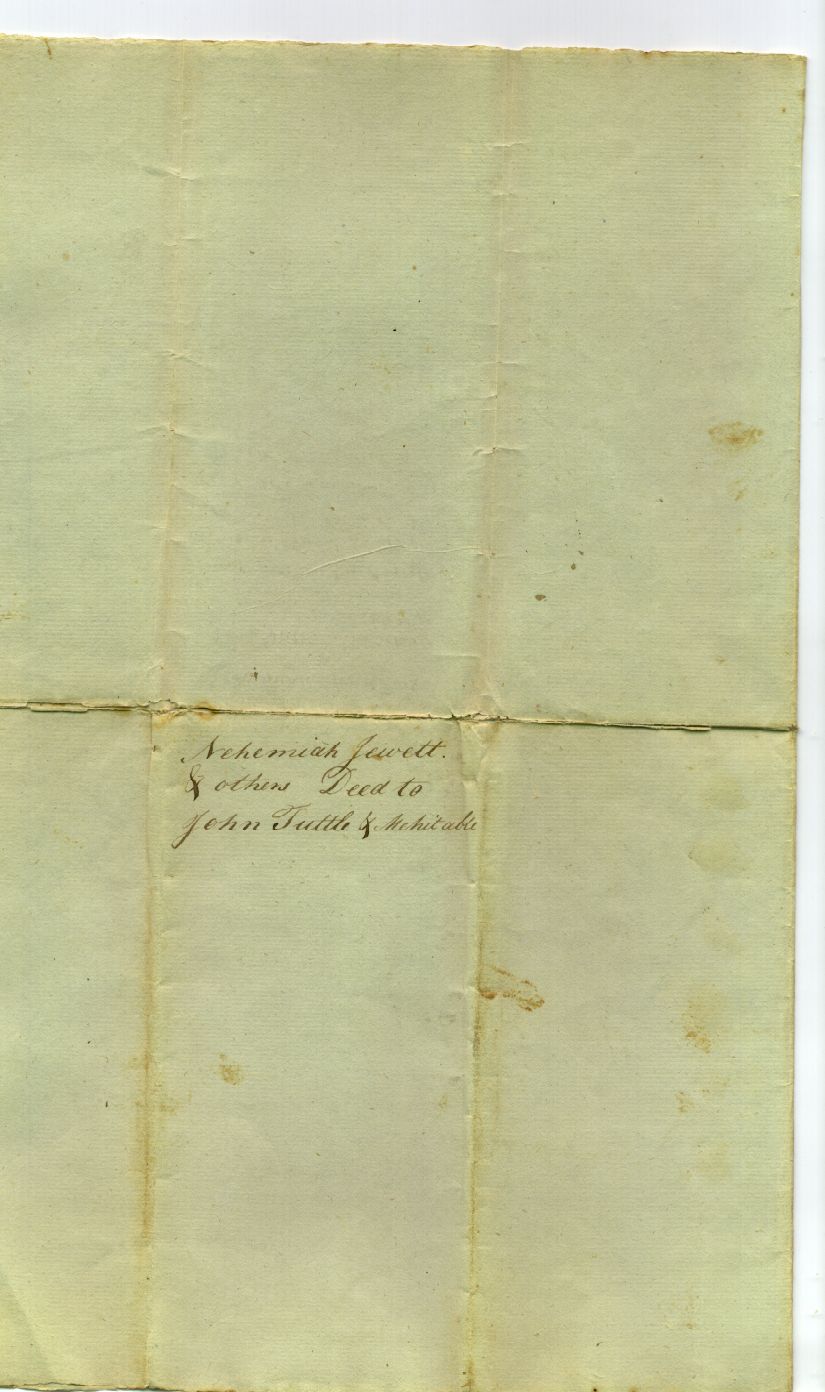 Nehemiah Jewett.
& others Deed to
John Tuttle & Mehitable